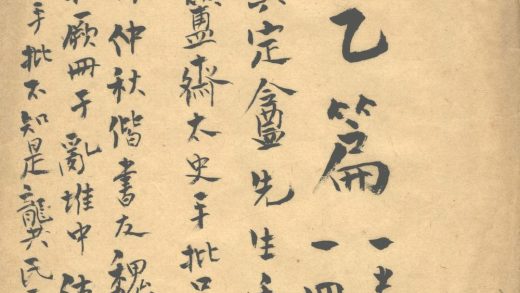 乙篇
一冊
定盦先生
齋太史手批
仲秋偕書友魏
厥冊子亂堆中
手批不知是龔氏